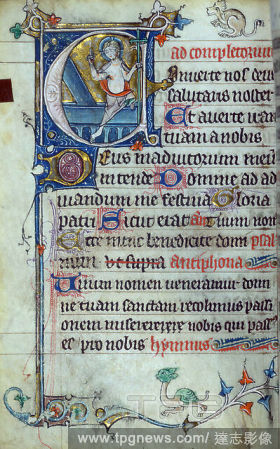 ad completorium
Converte nos deus
salutaris noster
Et averte iram
tuam a nobis
Deus in adiutorium meum
intende Domine ad ad
iuvandum me festina Gloria
patri Sicut erat ant tuum nomen
Ecce nunc benedicite domi psal
mum ut supra antiphona
Tuum nomen veneramur domi
ne tuam sanctam recolimus passi
onem miserere nobis qui passus
es pro nobis hymnus
www.tpgnews.com/ 達志影像